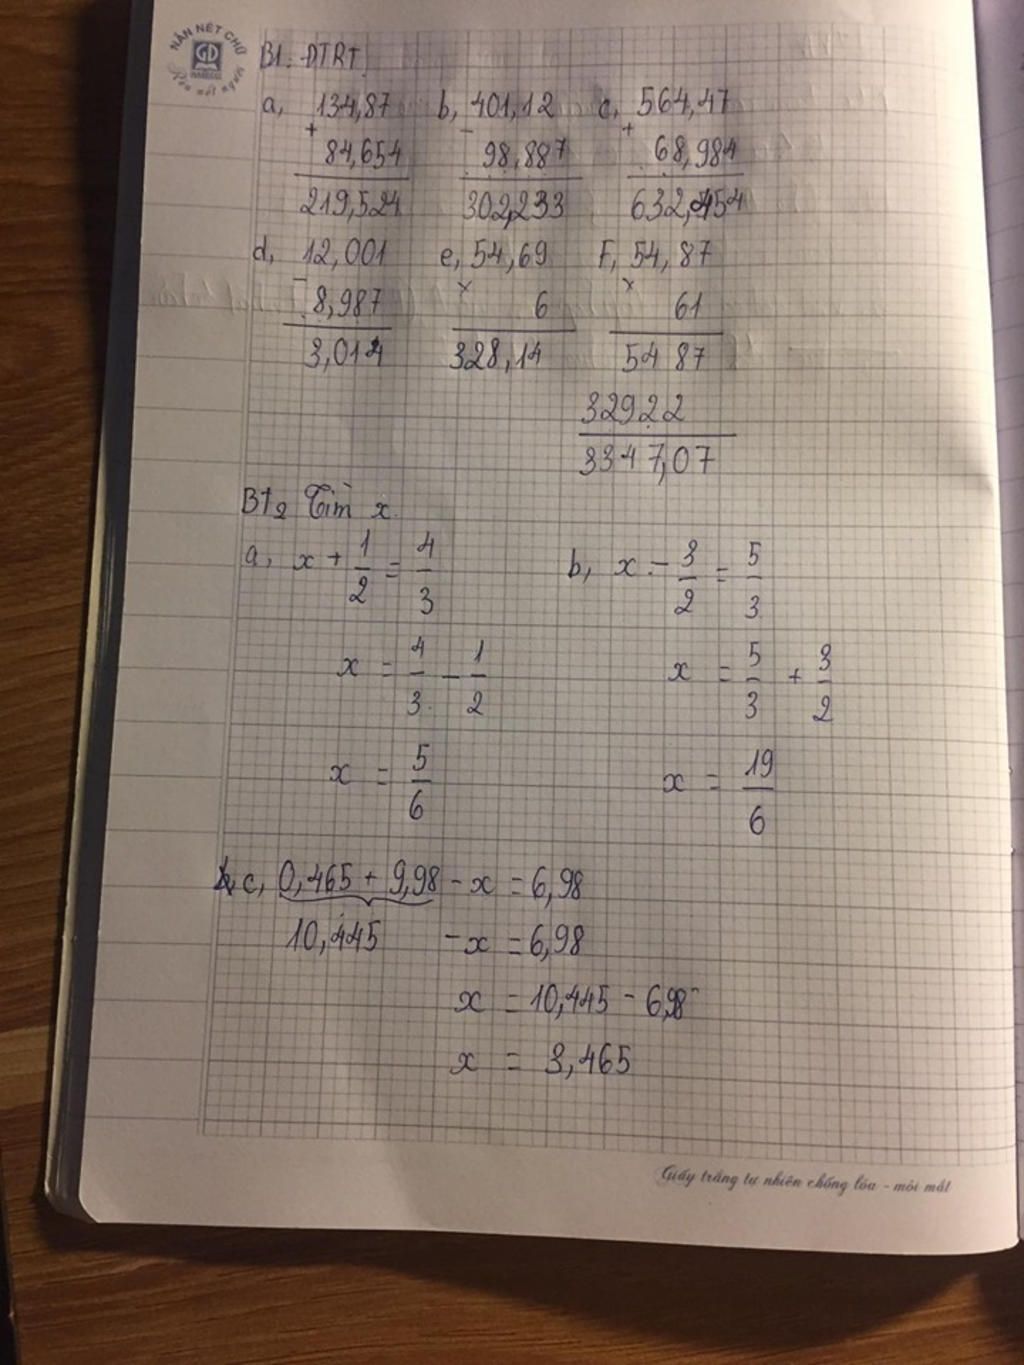 NẮN NÉT CHỮ
GD
Rèn nết người
B1. ĐTRT.
a, 134,87 b, 401,12 c, 564,47
+ - +
84,654 98,887 68,984
219,524 302,233 632,454
d, 12,001 e, 54,69 F, 54,87
- x x
8,987 6 61
3,014 328,14 5487
32922
3347,07
BT2 Tìm x.
a, x + 1/2 = 4/3 b, x - 3/2 = 5/3
x = 4/3 - 1/2 x = 5/3 + 3/2
x = 5/6 x = 19/6
c, 0,465 + 9,98 - x = 6,98
10,445 - x = 6,98
x = 10,445 - 6,98
x = 3,465
Giấy trắng tự nhiên chống lóa - mỏi mắt